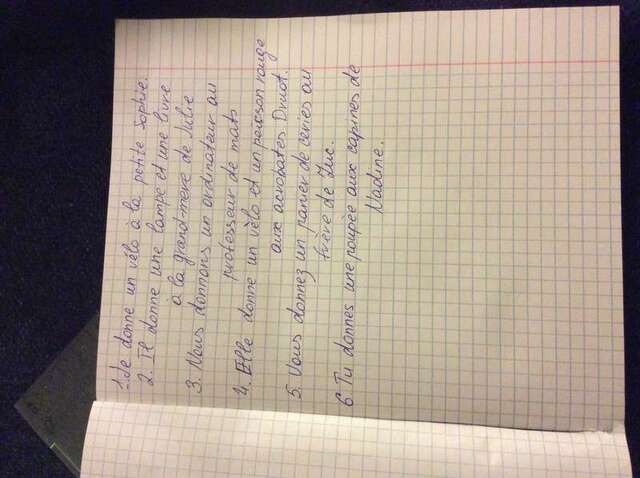 1. Je donne un vélo à la petite Sophie.
2. Il donne une lampe et une livre
à la grand-mère de Julie
3. Nous donnons un ordinateur au
professeur de mats
4. Elle donne un vélo et un poisson rouge
aux acrobates Drwot.
5. Vous donnez un panier de ceries au
frère de Luc.
6. Tu donnes une poupée aux copines de
Nadine.